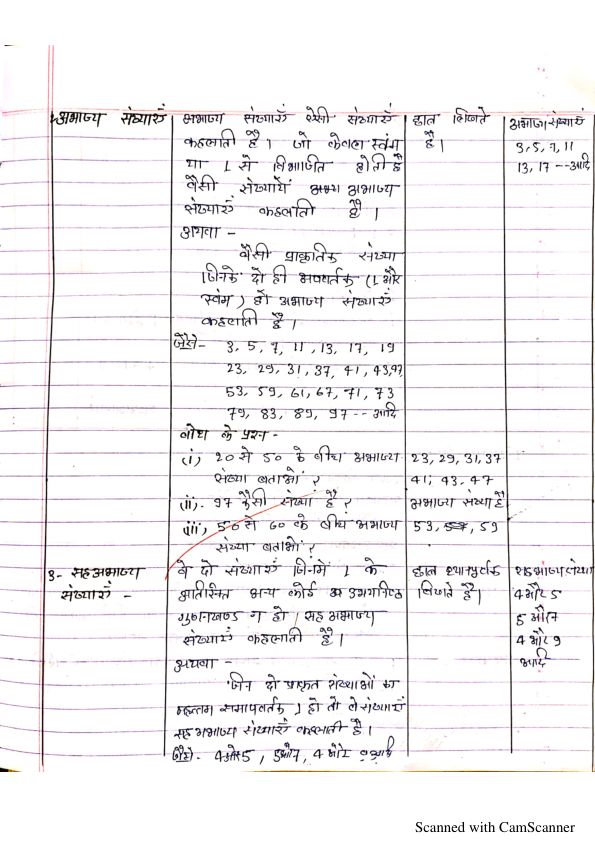 अभाज्य संख्याएँ
अभाज्य संख्याएँ ऐसी संख्याएँ
कहलाती है। जो केवल स्वंम
या 1 से विभाजित होती है
वैसी संख्यायें अभाज्य
संख्याएँ कहलाती है।
अथवा -
वैसी प्राकृतिक संख्या
जिनके दो ही अपवर्तक (1 और
स्वंम) हो अभाज्य संख्याएँ
कहलाती है।
जैसे- 3, 5, 7, 11, 13, 17, 19
23, 29, 31, 37, 41, 43, 47
53, 59, 61, 67, 71, 73
79, 83, 89, 97 -- आदि
बोध के प्रश्न -
(i) 20 से 50 के बीच अभाज्य
संख्या बताओं?
(ii). 97 कैसी संख्या है?
(iii) 50 से 60 के बीच अभाज्य
संख्या बताओं?
छात्र लिखते
है।
23, 29, 31, 37
41, 43, 47
अभाज्य संख्या है
53, 57, 59
अभाज्य संख्याएं
3, 5, 7, 11
13, 17 -- आदि
3- सह अभाज्य
संख्याएँ -
वे दो संख्याएँ जिनमें 1 के
अतिरिक्त अन्य कोई उभयनिष्ठ
गुणनखण्ड न हो, सह अभाज्य
संख्याएँ कहलाती है।
अथवा -
जिन दो प्राकृत संख्याओं का
महत्तम समापवर्तक 1 हो तो वे संख्याएँ
सह अभाज्य संख्याएँ कहलाती है।
जैसे- 4 और 5, 5 और 7, 4 और 9 इत्यादि
छात्र ध्यानपूर्वक
लिखते है।
सह अभाज्य संख्या
4 और 5
5 और 7
4 और 9
आदि
Scanned with CamScanner